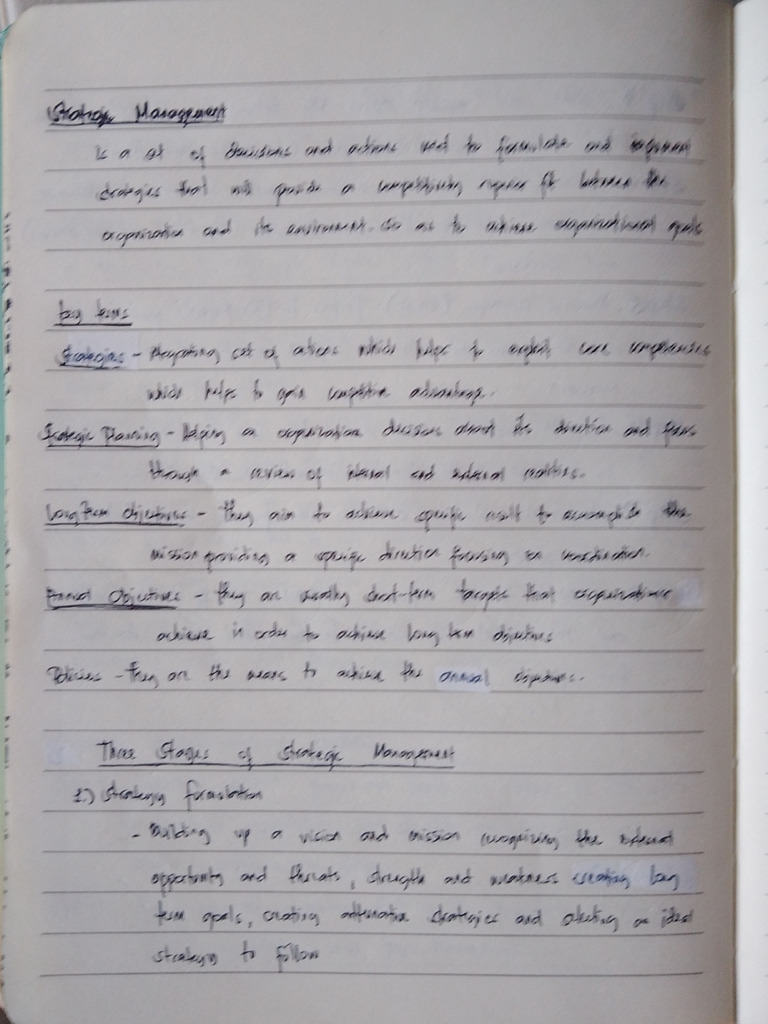 Strategic Management
is a set of decisions and actions used to formulate and implement
strategies that will provide a competitively superior fit between the
organization and its environment so as to achieve organizational goals
Key terms
Strategies - Integrating set of actions which helps to exploit core competencies
which helps to gain competitive advantage.
Strategic Planning - Helping an organization decisions about its direction and focus
through a review of internal and external realities.
Long Term Objectives - they aim to achieve specific result to accomplish the
mission providing a specific direction focusing on coordination.
Annual Objectives - they are short-term targets that organizations
achieve in order to achieve long term objectives
Policies - They are the means to achieve the annual objectives.
Three Stages of Strategic Management
1.) Strategy formulation
- Building up a vision and mission recognizing the external
opportunity and threats, strength and weakness creating long
term goals, creating alternative strategies and selecting an ideal
strategy to follow